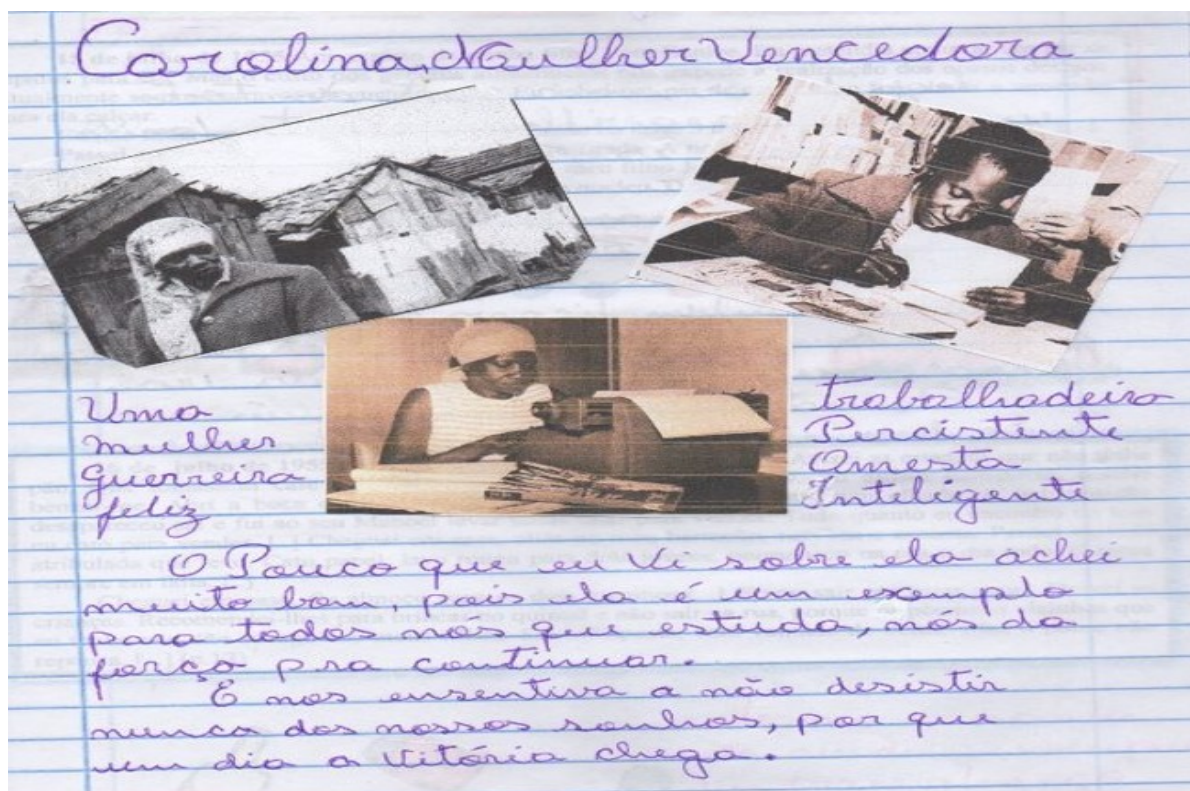 Carolina, Mulher Vencedora
Uma
mulher
Guerreira
feliz
trabalhadeira
Percistente
Onesta
Inteligente
O Pouco que eu Vi sobre ela achei
muito bom, pois ela é um exemplo
para todos nós que estuda, nós da
força pra continuar.
E nos ensentiva a não desistir
nunca dos nossos sonhos, por que
um dia a Vitória chega.